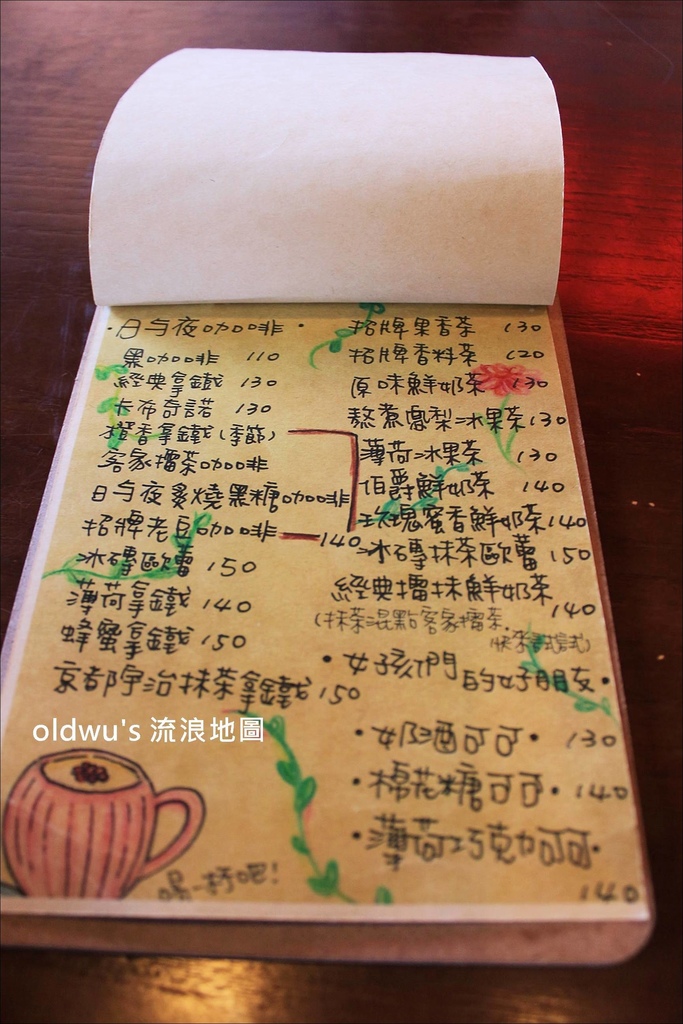 ·日与夜咖啡·
黑咖啡 110
經典拿鐵 130
卡布奇諾 130
橙香拿鐵(季節)
客家擂茶咖啡
日与夜炙燒黑糖咖啡
招牌老豆咖啡 140
冰磚歐蕾 150
薄荷拿鐵 140
蜂蜜拿鐵 150
京都宇治抹茶拿鐵 150
招牌果香茶 130
招牌香料茶 120
原味鮮奶茶 130
熬煮鳳梨冰果茶 130
薄荷冰果茶 130
伯爵鮮奶茶 140
玫瑰蜜香鮮奶茶 140
冰磚抹茶歐蕾 150
經典擂抹鮮奶茶
140
(抹茶混點客家擂茶,
快來試試)
·女孩們的好朋友·
·奶酒可可· 130
·棉花糖可可· 140
·薄荷巧克力可可·
140
喝一杯吧!
oldwu's 流浪地圖